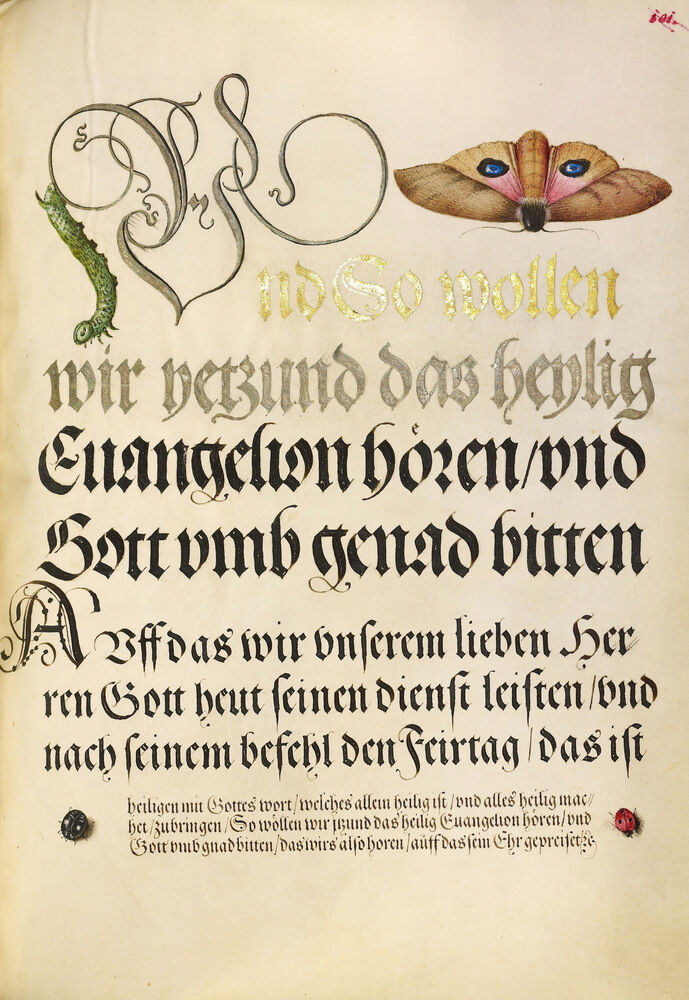 101.
Vnd So wollen
wir yetzund das heylig
Euangelion hören/vnd
Gott vmb genad bitten
AVff das wir vnserem lieben Her
ren Gott heut seinen dienst leisten/vnd
nach seinem befehl den Feirtag/das ist
heiligen mit Gottes wort/welches allein heilig ist/vnd alles heilig mac//
het/zubringen/So wöllen wir jtzund das heilig Euangelion hören/vnd
Gott vmb gnad bitten/das wirs also horen/auff das sein Ehr gepreiset ꝛc